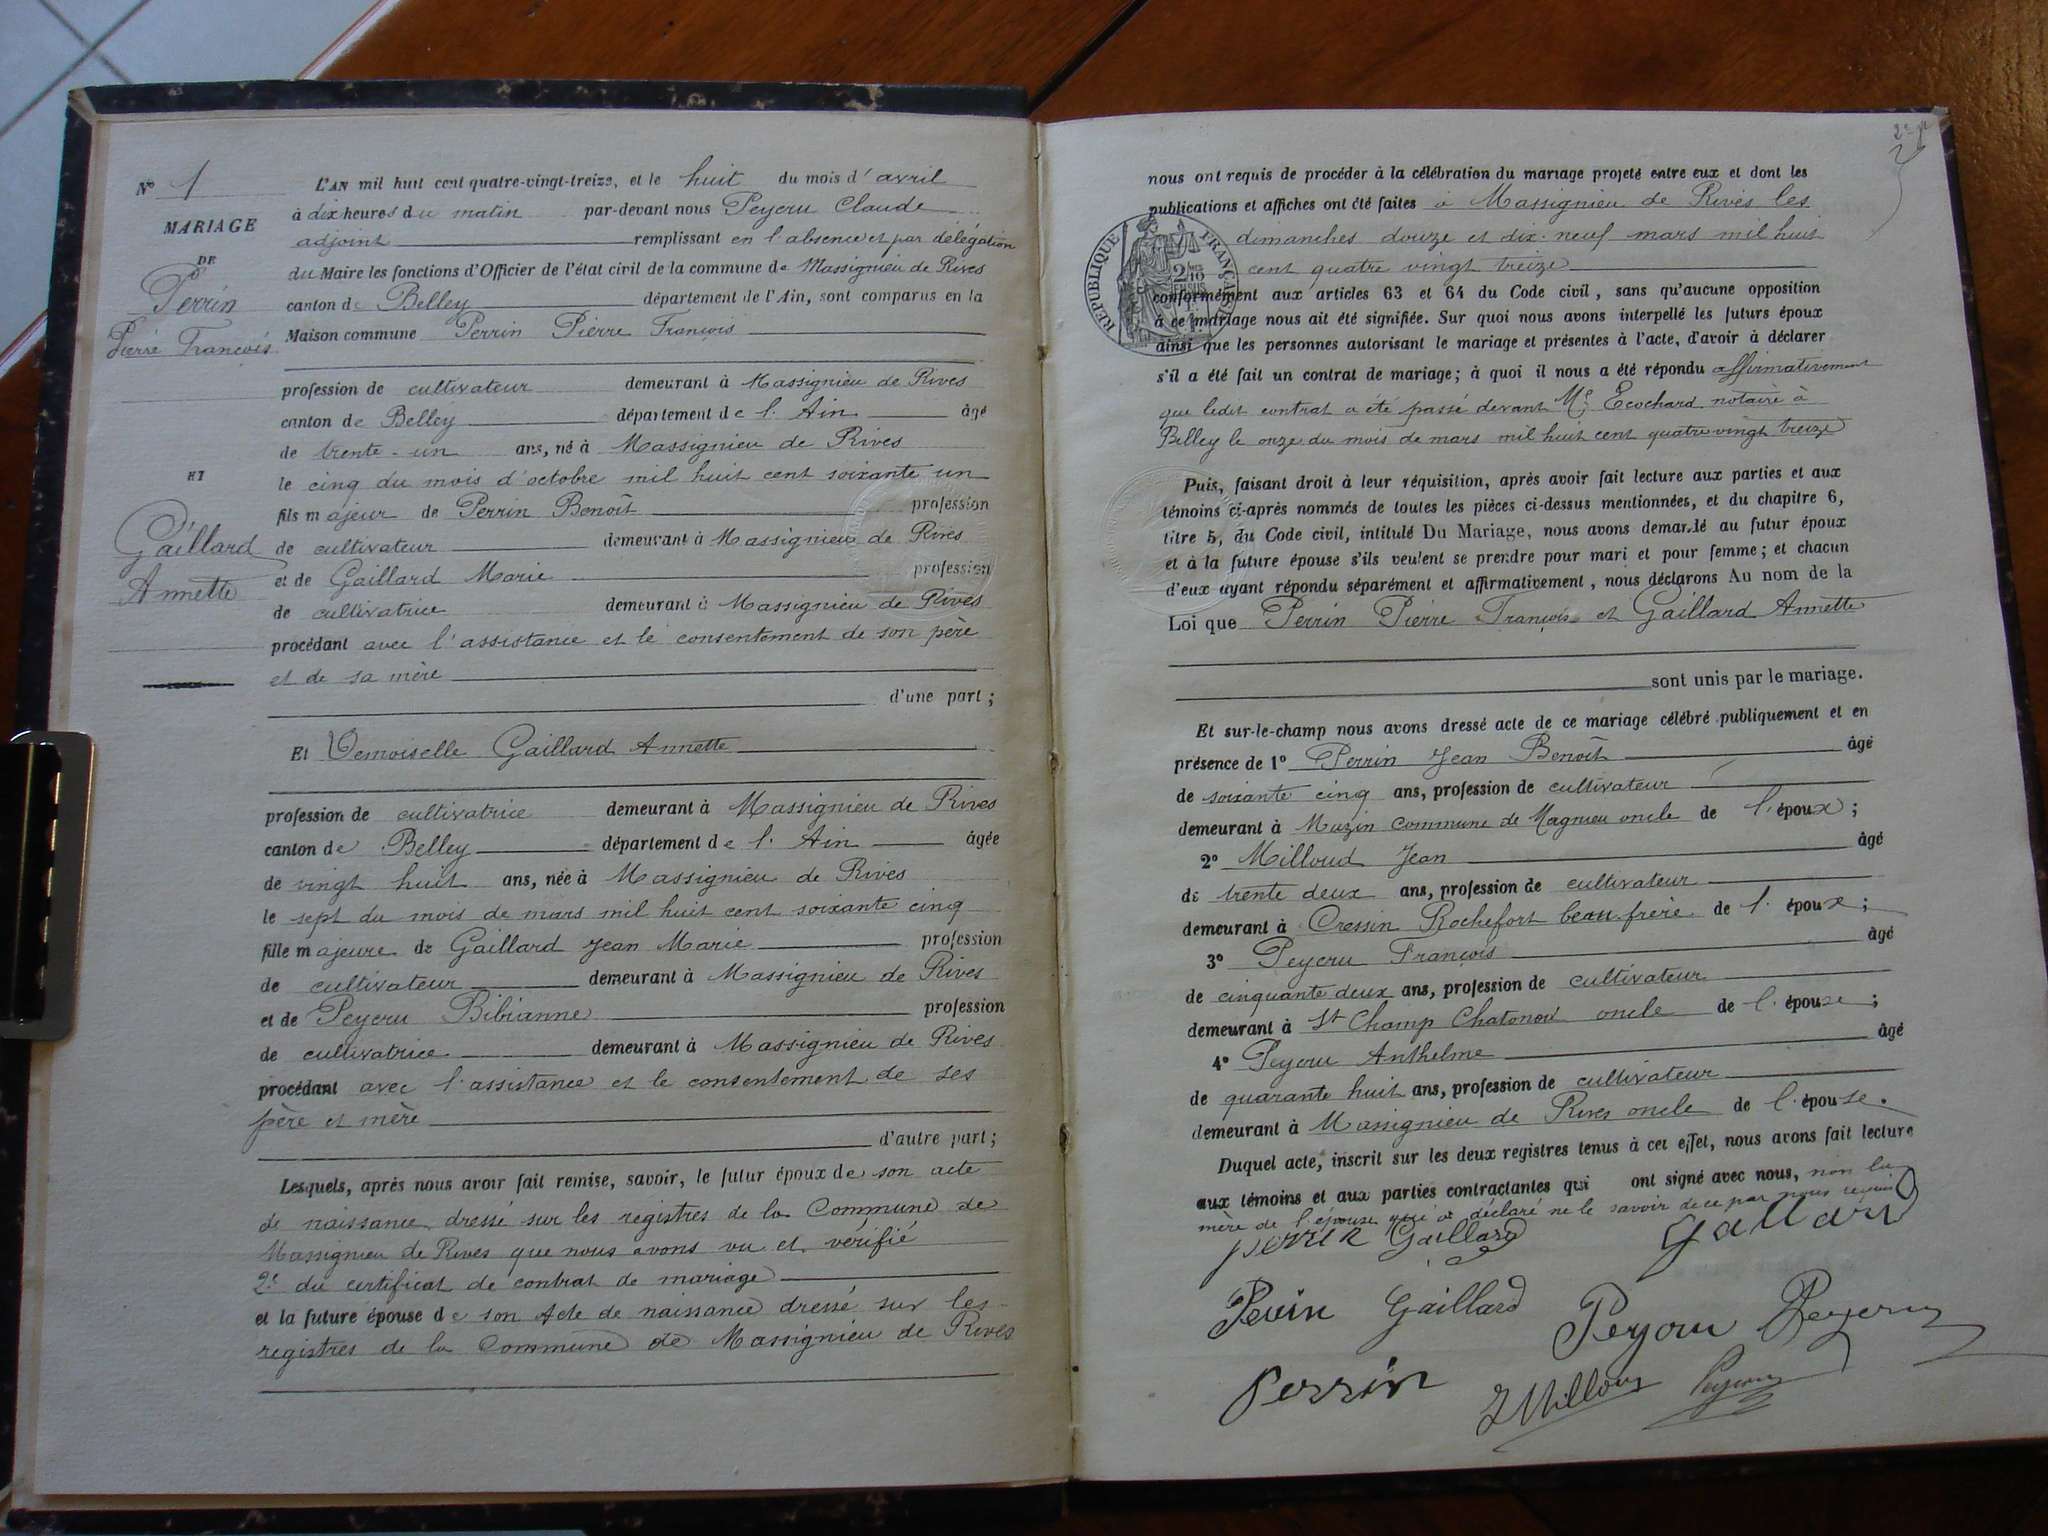 N° 1
MARIAGE
DE
Perrin
Pierre François
ET
Gaillard
Annette
L'AN mil huit cent quatre-vingt-treize, et le huit du mois d'avril
à dix heures du matin par-devant nous Peyeru Claude
adjoint remplissant en l'absence et par délégation
du Maire les fonctions d'Officier de l'état civil de la commune de Massignieu de Rives
canton de Belley département de l'Ain, sont comparus en la
Maison commune Perrin Pierre François
profession de cultivateur demeurant à Massignieu de Rives
canton de Belley département de l'Ain âgé
de trente-un ans, né à Massignieu de Rives
le cinq du mois d'octobre mil huit cent soixante un
fils majeur de Perrin Benoît profession
de cultivateur demeurant à Massignieu de Rives
et de Gaillard Marie profession
de cultivatrice demeurant à Massignieu de Rives
procédant avec l'assistance et le consentement de son père
et de sa mère
d'une part ;
Et Demoiselle Gaillard Annette
profession de cultivatrice demeurant à Massignieu de Rives
canton de Belley département de l'Ain âgée
de vingt huit ans, née à Massignieu de Rives
le sept du mois de mars mil huit cent soixante cinq
fille majeure de Gaillard Jean Marie profession
de cultivateur demeurant à Massignieu de Rives
et de Peyeru Bibianne profession
de cultivatrice demeurant à Massignieu de Rives
procédant avec l'assistance et le consentement de ses
père et mère
d'autre part ;
Lesquels, après nous avoir fait remise, savoir, le futur époux de son acte
de naissance dressé sur les registres de la Commune de
Massignieu de Rives que nous avons vu et vérifié
2° du certificat de contrat de mariage
et la future épouse de son Acte de naissance dressé sur les
registres de la Commune de Massignieu de Rives
nous ont requis de procéder à la célébration du mariage projeté entre eux et dont les
publications et affiches ont été faites à Massignieu de Rives les
dimanches douze et dix-neuf mars mil huit
cent quatre vingt treize
RÉPUBLIQUE FRANÇAISE
conformément aux articles 63 et 64 du Code civil, sans qu'aucune opposition
à ce mariage nous ait été signifiée. Sur quoi nous avons interpellé les futurs époux
ainsi que les personnes autorisant le mariage et présentes à l'acte, d'avoir à déclarer
s'il a été fait un contrat de mariage ; à quoi il nous a été répondu affirmativement
que ledit contrat a été passé devant Me Ecochard notaire à
Belley le onze du mois de mars mil huit cent quatre vingt treize
Puis, faisant droit à leur réquisition, après avoir fait lecture aux parties et aux
témoins ci-après nommés de toutes les pièces ci-dessus mentionnées, et du chapitre 6,
titre 5, du Code civil, intitulé Du Mariage, nous avons demandé au futur époux
et à la future épouse s'ils veulent se prendre pour mari et pour femme ; et chacun
d'eux ayant répondu séparément et affirmativement, nous déclarons Au nom de la
Loi que Perrin Pierre François et Gaillard Annette
sont unis par le mariage.
Et sur-le-champ nous avons dressé acte de ce mariage célébré publiquement et en
présence de 1° Perrin Jean Benoît âgé
de soixante cinq ans, profession de cultivateur
demeurant à Muzin commune de Magnieu oncle de l'époux ;
2° Milloud Jean âgé
de trente deux ans, profession de cultivateur
demeurant à Cressin Rochefort beau-frère de l'époux ;
3° Peyeru François âgé
de cinquante deux ans, profession de cultivateur
demeurant à St Champ Chatonod oncle de l'épouse ;
4° Peyeru Anthelme âgé
de quarante huit ans, profession de cultivateur
demeurant à Massignieu de Rives oncle de l'épouse.
Duquel acte, inscrit sur les deux registres tenus à cet effet, nous avons fait lecture
aux témoins et aux parties contractantes qui ont signé avec nous, non la
mère de l'épouse qui a déclaré ne le savoir de ce par nous requise
perrin Gaillard Gaillard
Perrin Gaillard Peyeru Peyeru
Perrin J Milloud Peyeru